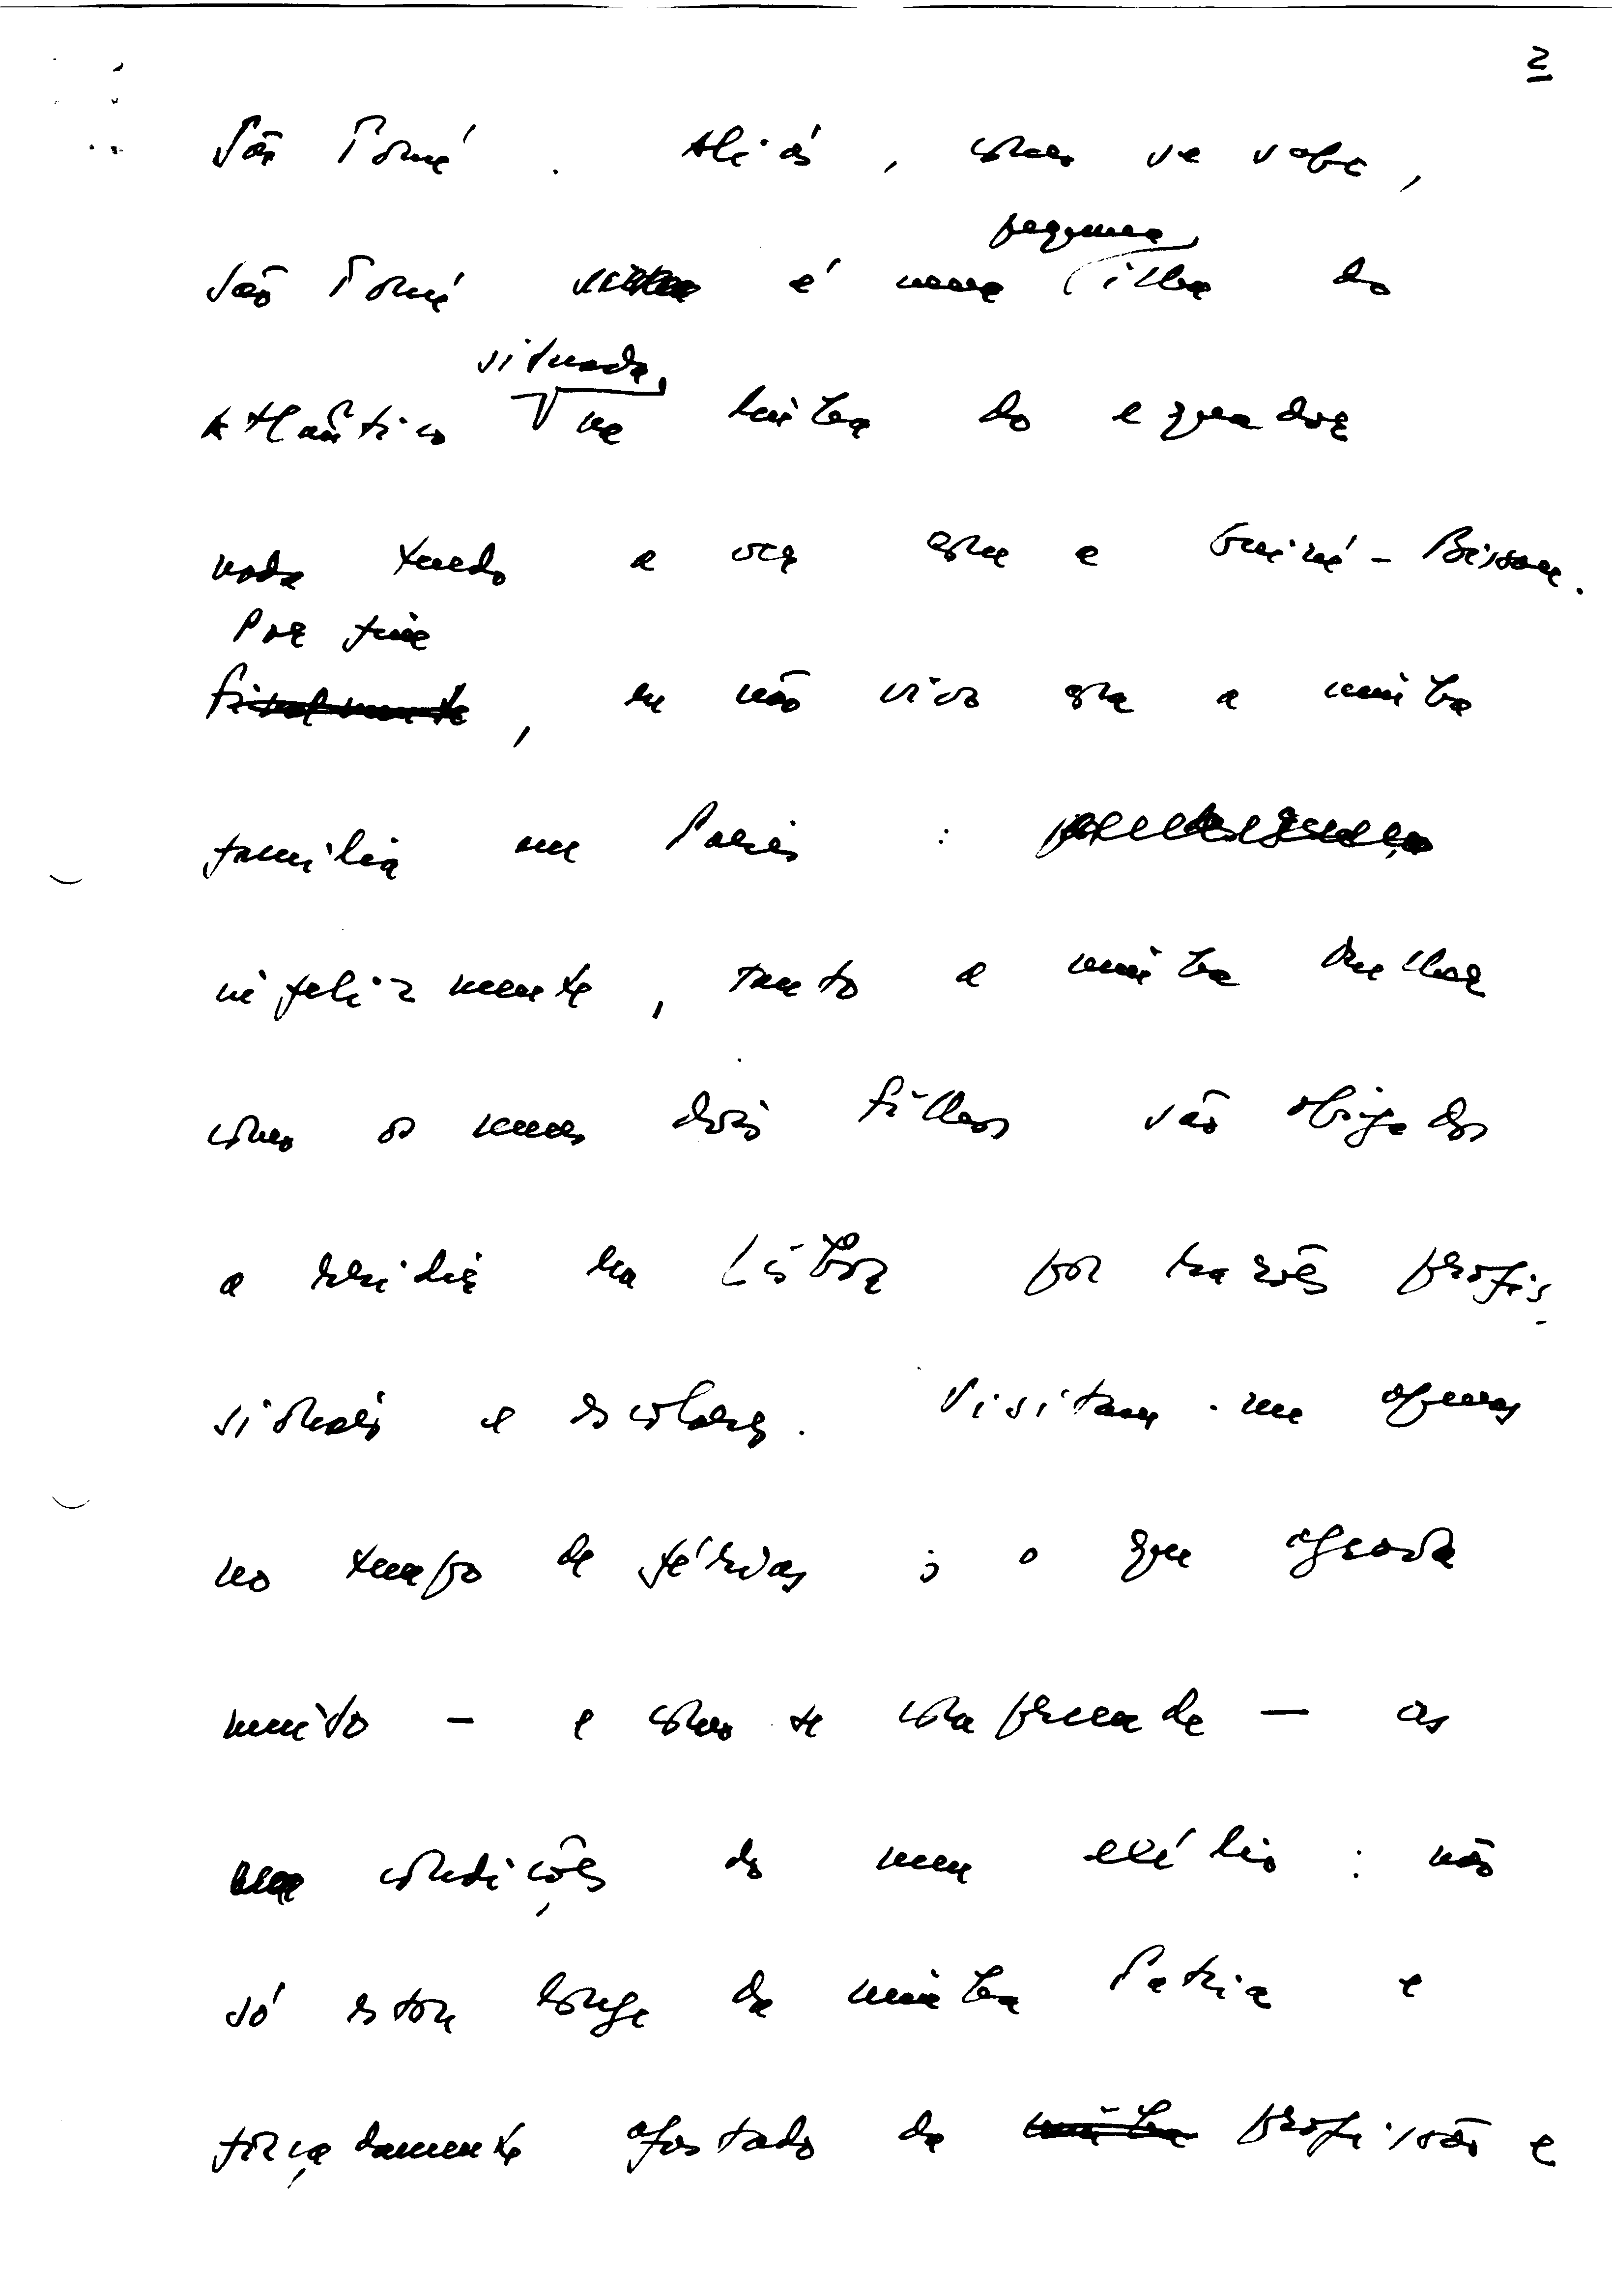 2
São Tomé. Aliás, como se sabe,
pequena
São Tomé é uma ilha do
situada,
Atlântico na linha do equador
nada tendo a ver com a Guiné-Bissau.
Por fim
finalmente, eu não vivo com a minha
família em Paris :
infelizmente, tanto a minha mulher
como os meus dois filhos são obrigados
a residir em Lisboa por razões profis-
sionais e escolares. Visitam-me apenas
no tempo de férias ; o que agrava
muito — e como se compreende — as
condições do meu exílio : não
só estou longe da minha Pátria e
forçadamente afastado da minha profissão e